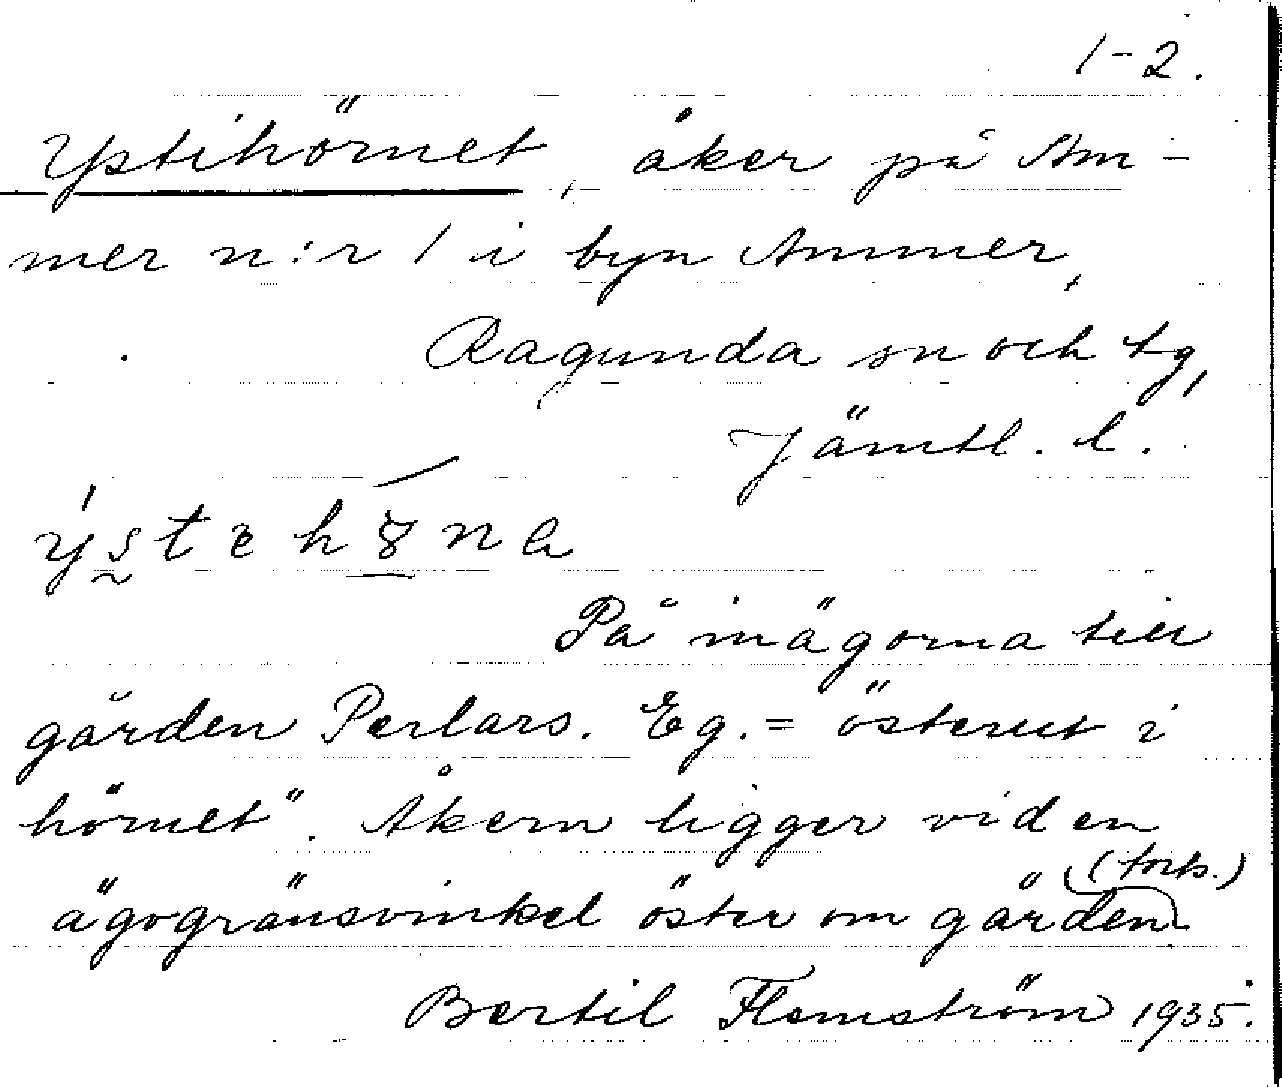 1-2.
Ystihörnet, åker på Am-
mer n:r 1 i byn Ammer,
Ragunda sn och tg,
Jämtl. l.
På inägorna till
gården Perlars. Eg. = österut i
hörnet". Åkern ligger vid en
ägogränsvinkel öster om gården (forts.)
Bertil Flemström 1935.